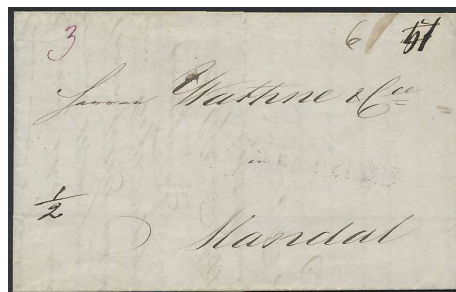 3 6
Herren Wathne & Cie
1/2
Mandal